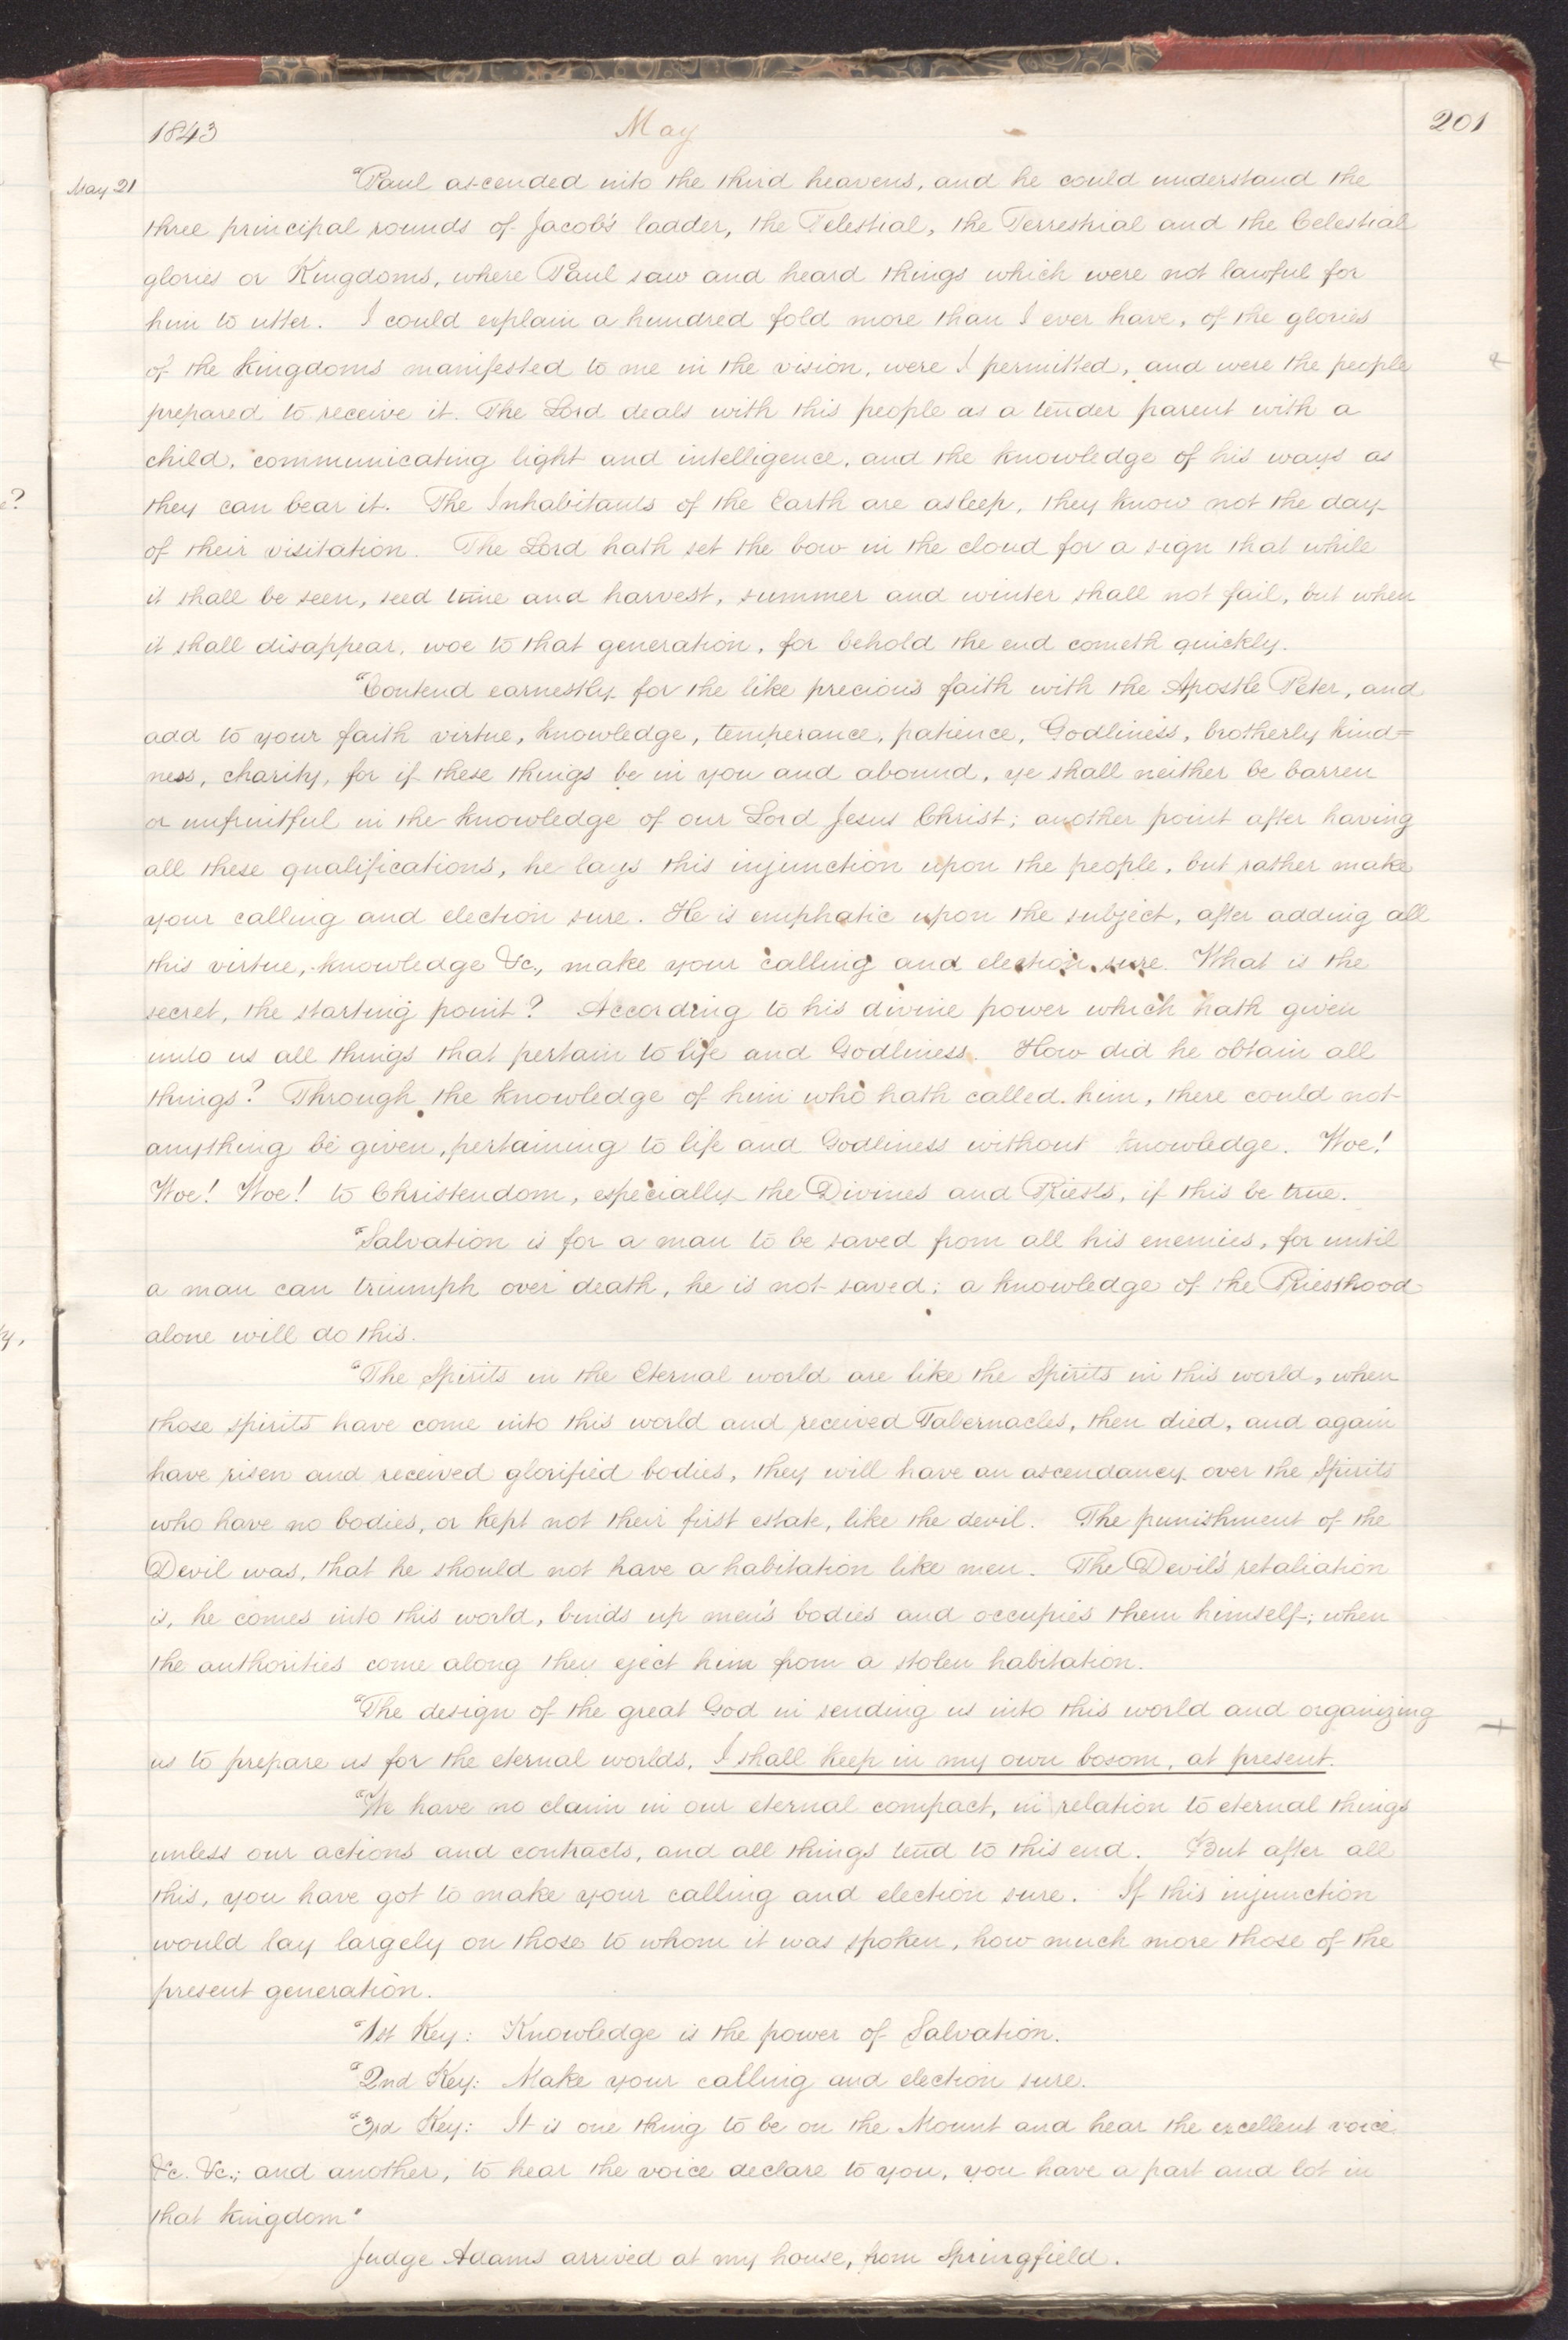 1843
May
201
May 21
"Paul ascended into the third heavens, and he could understand the
three principal rounds of Jacob's ladder, the Telestial, the Terrestrial and the Celestial
glories or Kingdoms, where Paul saw and heard things which were not lawful for
him to utter. I could explain a hundred fold more than I ever have, of the glories
of the Kingdoms manifested to me in the vision, were I permitted, and were the people
prepared to receive it. The Lord deals with this people as a tender parent with a
child, communicating light and intelligence, and the knowledge of his ways as
they can bear it. The Inhabitants of the Earth are asleep, they know not the day
of their visitation. The Lord hath set the bow in the cloud for a sign that while
it shall be seen, seed time and harvest, summer and winter shall not fail, but when
it shall disappear, woe to that generation, for behold the end cometh quickly.
"Contend earnestly for the like precious faith with the Apostle Peter, and
add to your faith virtue, knowledge, temperance, patience, Godliness, brotherly kind=
ness, charity, for if these things be in you and abound, ye shall neither be barren
or unfruitful in the knowledge of our Lord Jesus Christ; another point after having
all these qualifications, he lays this injunction upon the people, but rather make
your calling and election sure. He is emphatic upon the subject, after adding all
this virtue, knowledge &c., make your calling and election sure. What is the
secret, the starting point? According to his divine power which hath given
unto us all things that pertain to life and Godliness. How did he obtain all
things? Through the knowledge of him who hath called him, there could not
anything be given, pertaining to life and Godliness without knowledge. Woe!
Woe! Woe! to Christendom, especially the Divines and Priests, if this be true.
"Salvation is for a man to be saved from all his enemies, for until
a man can triumph over death, he is not saved; a knowledge of the Priesthood
alone will do this.
"The Spirits in the Eternal world are like the Spirits in this world, when
those spirits have come into this world and received Tabernacles, then died, and again
have risen and received glorified bodies, they will have an ascendancy over the Spirits
who have no bodies, or kept not their first estate, like the devil. The punishment of the
Devil was, that he should not have a habitation like men. The Devil's retaliation
is, he comes into this world, binds up men's bodies and occupies them himself; when
the authorities come along they eject him from a stolen habitation.
"The design of the great God in sending us into this world and organizing
us to prepare us for the eternal worlds, I shall keep in my own bosom, at present.
"We have no claim in our eternal compact, in relation to eternal things
unless our actions and contracts, and all things tend to this end. But after all
this, you have got to make your calling and election sure. If this injunction
would lay largely on those to whom it was spoken, how much more those of the
present generation.
"1st Key: Knowledge is the power of Salvation.
"2nd Key: Make your calling and election sure.
"3rd Key: It is one thing to be on the Mount and hear the excellent voice
&c. &c.; and another, to hear the voice declare to you, you have a part and lot in
that kingdom"
Judge Adams arrived at my house, from Springfield.